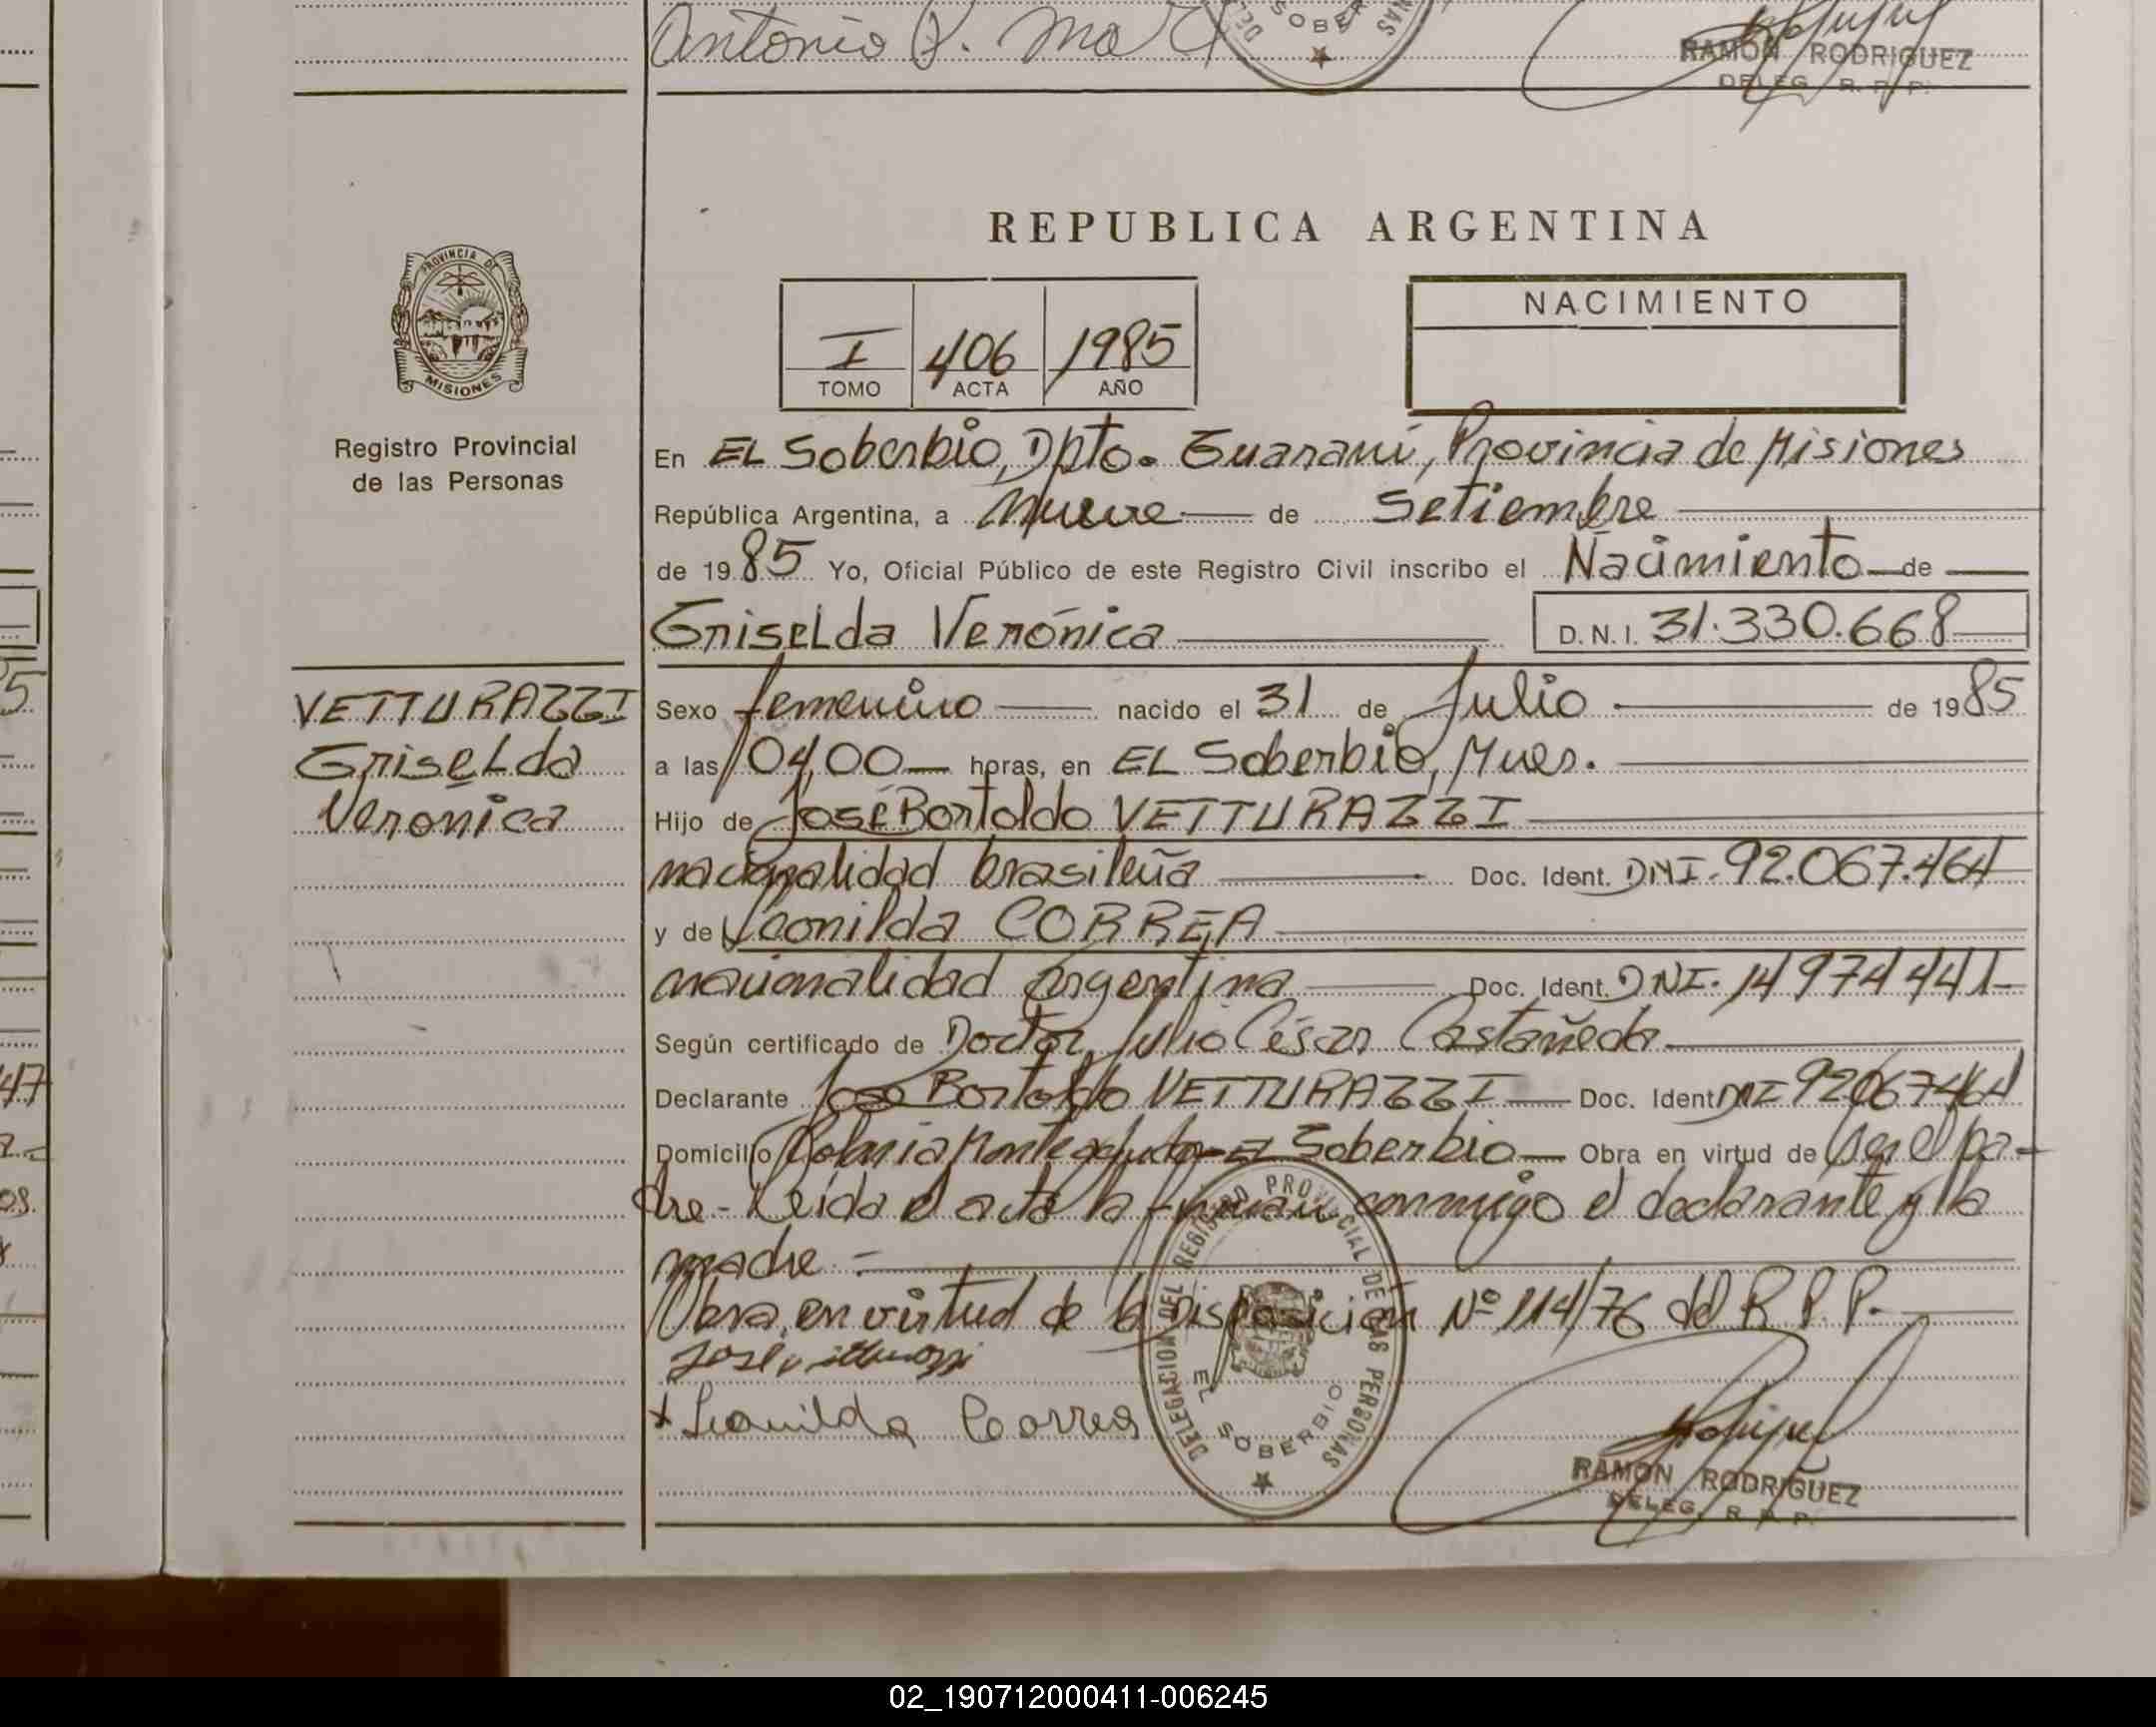 Antonio
DEL
SOBER
NAS
RAMON RODRIGUEZ
DELEG. R. P. P.
REPUBLICA ARGENTINA
PROVINCIA DE
MISIONES
Registro Provincial
de las Personas
I 406 1985
TOMO ACTA AÑO
NACIMIENTO
En EL Soberbio, Dpto. Guaraní, Provincia de Misiones
República Argentina, a Nueve de Setiembre
de 1985 Yo, Oficial Público de este Registro Civil inscribo el Nacimiento de
Griselda Verónica D.N.I. 31.330.668
VETTURAZZI
Griselda
Veronica
Sexo femenino nacido el 31 de Julio de 1985
a las 04,00 horas, en EL Soberbio, Mnes.
Hijo de José Bortoldo VETTURAZZI
nacionalidad brasileña Doc. Ident. DNI. 92.067.464
y de Leonilda CORREA
nacionalidad argentina Doc. Ident. DNI. 14974441
Según certificado de Doctor Julio César Castañeda
Declarante José Bortoldo VETTURAZZI Doc. Ident DNI 92067464
Domicilio Colonia Monteagudo - EL Soberbio Obra en virtud de ser el pa-
dre - Leída el acta la firman conmigo el declarante y la
madre.-
Obra en virtud de la Disposición Nº 114/76 del R.P.P.
Jose
x Leonilda Correa
DELEGACION DEL REGISTRO PROVINCIAL DE LAS PERSONAS
EL SOBERBIO
RAMON RODRIGUEZ
DELEG. R. P. P.
47
02_190712000411-006245